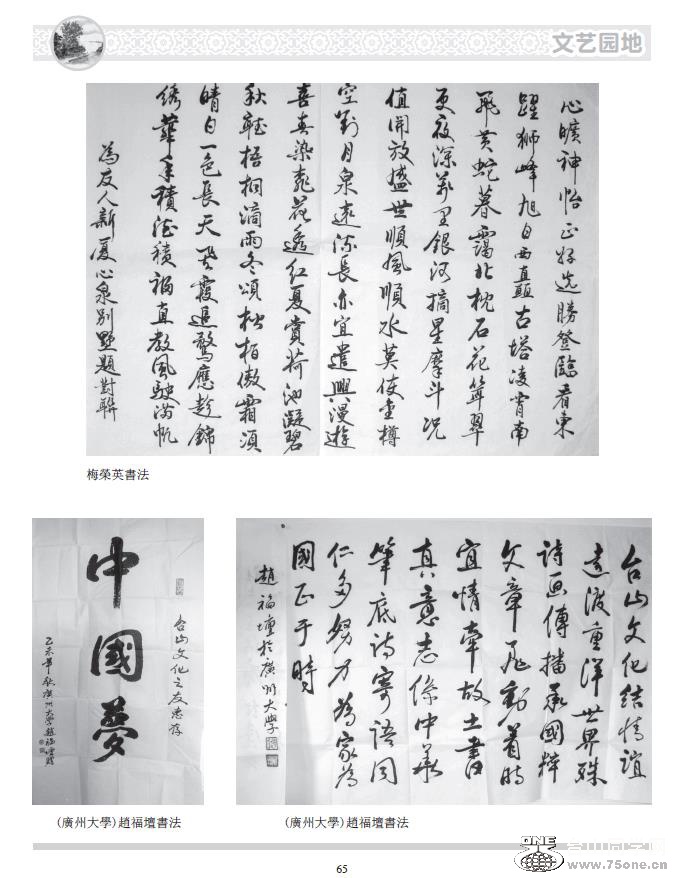 文艺园地
心曠神怡正好選勝登臨看東
躍獅峰旭日西直矗古塔凌霄南
飛黃蛇暮靄北枕石花箄翠
更夜深萬里銀河摘星摩斗況
值開放盛世順風順水莫使金樽
空對月泉遠流長亦宜遣興漫遊
喜春染花透紅夏賞荷池凝碧
秋聽梧桐滴雨冬頌松柏傲霜須
晴日一色長天飛霞追鶩應趁錦
綉華年積德積福直教風駛滿帆
為友人新厦心泉別墅題對聯
梅榮英書法
台山文化之友惠存
中國夢
乙未年秋廣州大學趙福壇贈
(廣州大學)趙福壇書法
台山文化結情誼
遠渡重洋世界殊
詩画傳播承國粹
文章飛動着時
宜情牽故土書
真意志係中華
筆底詩寄語同
仁多努力為家為
國正于時
趙福壇於廣州大學
(廣州大學)趙福壇書法
65
ONE
www.75one.cn